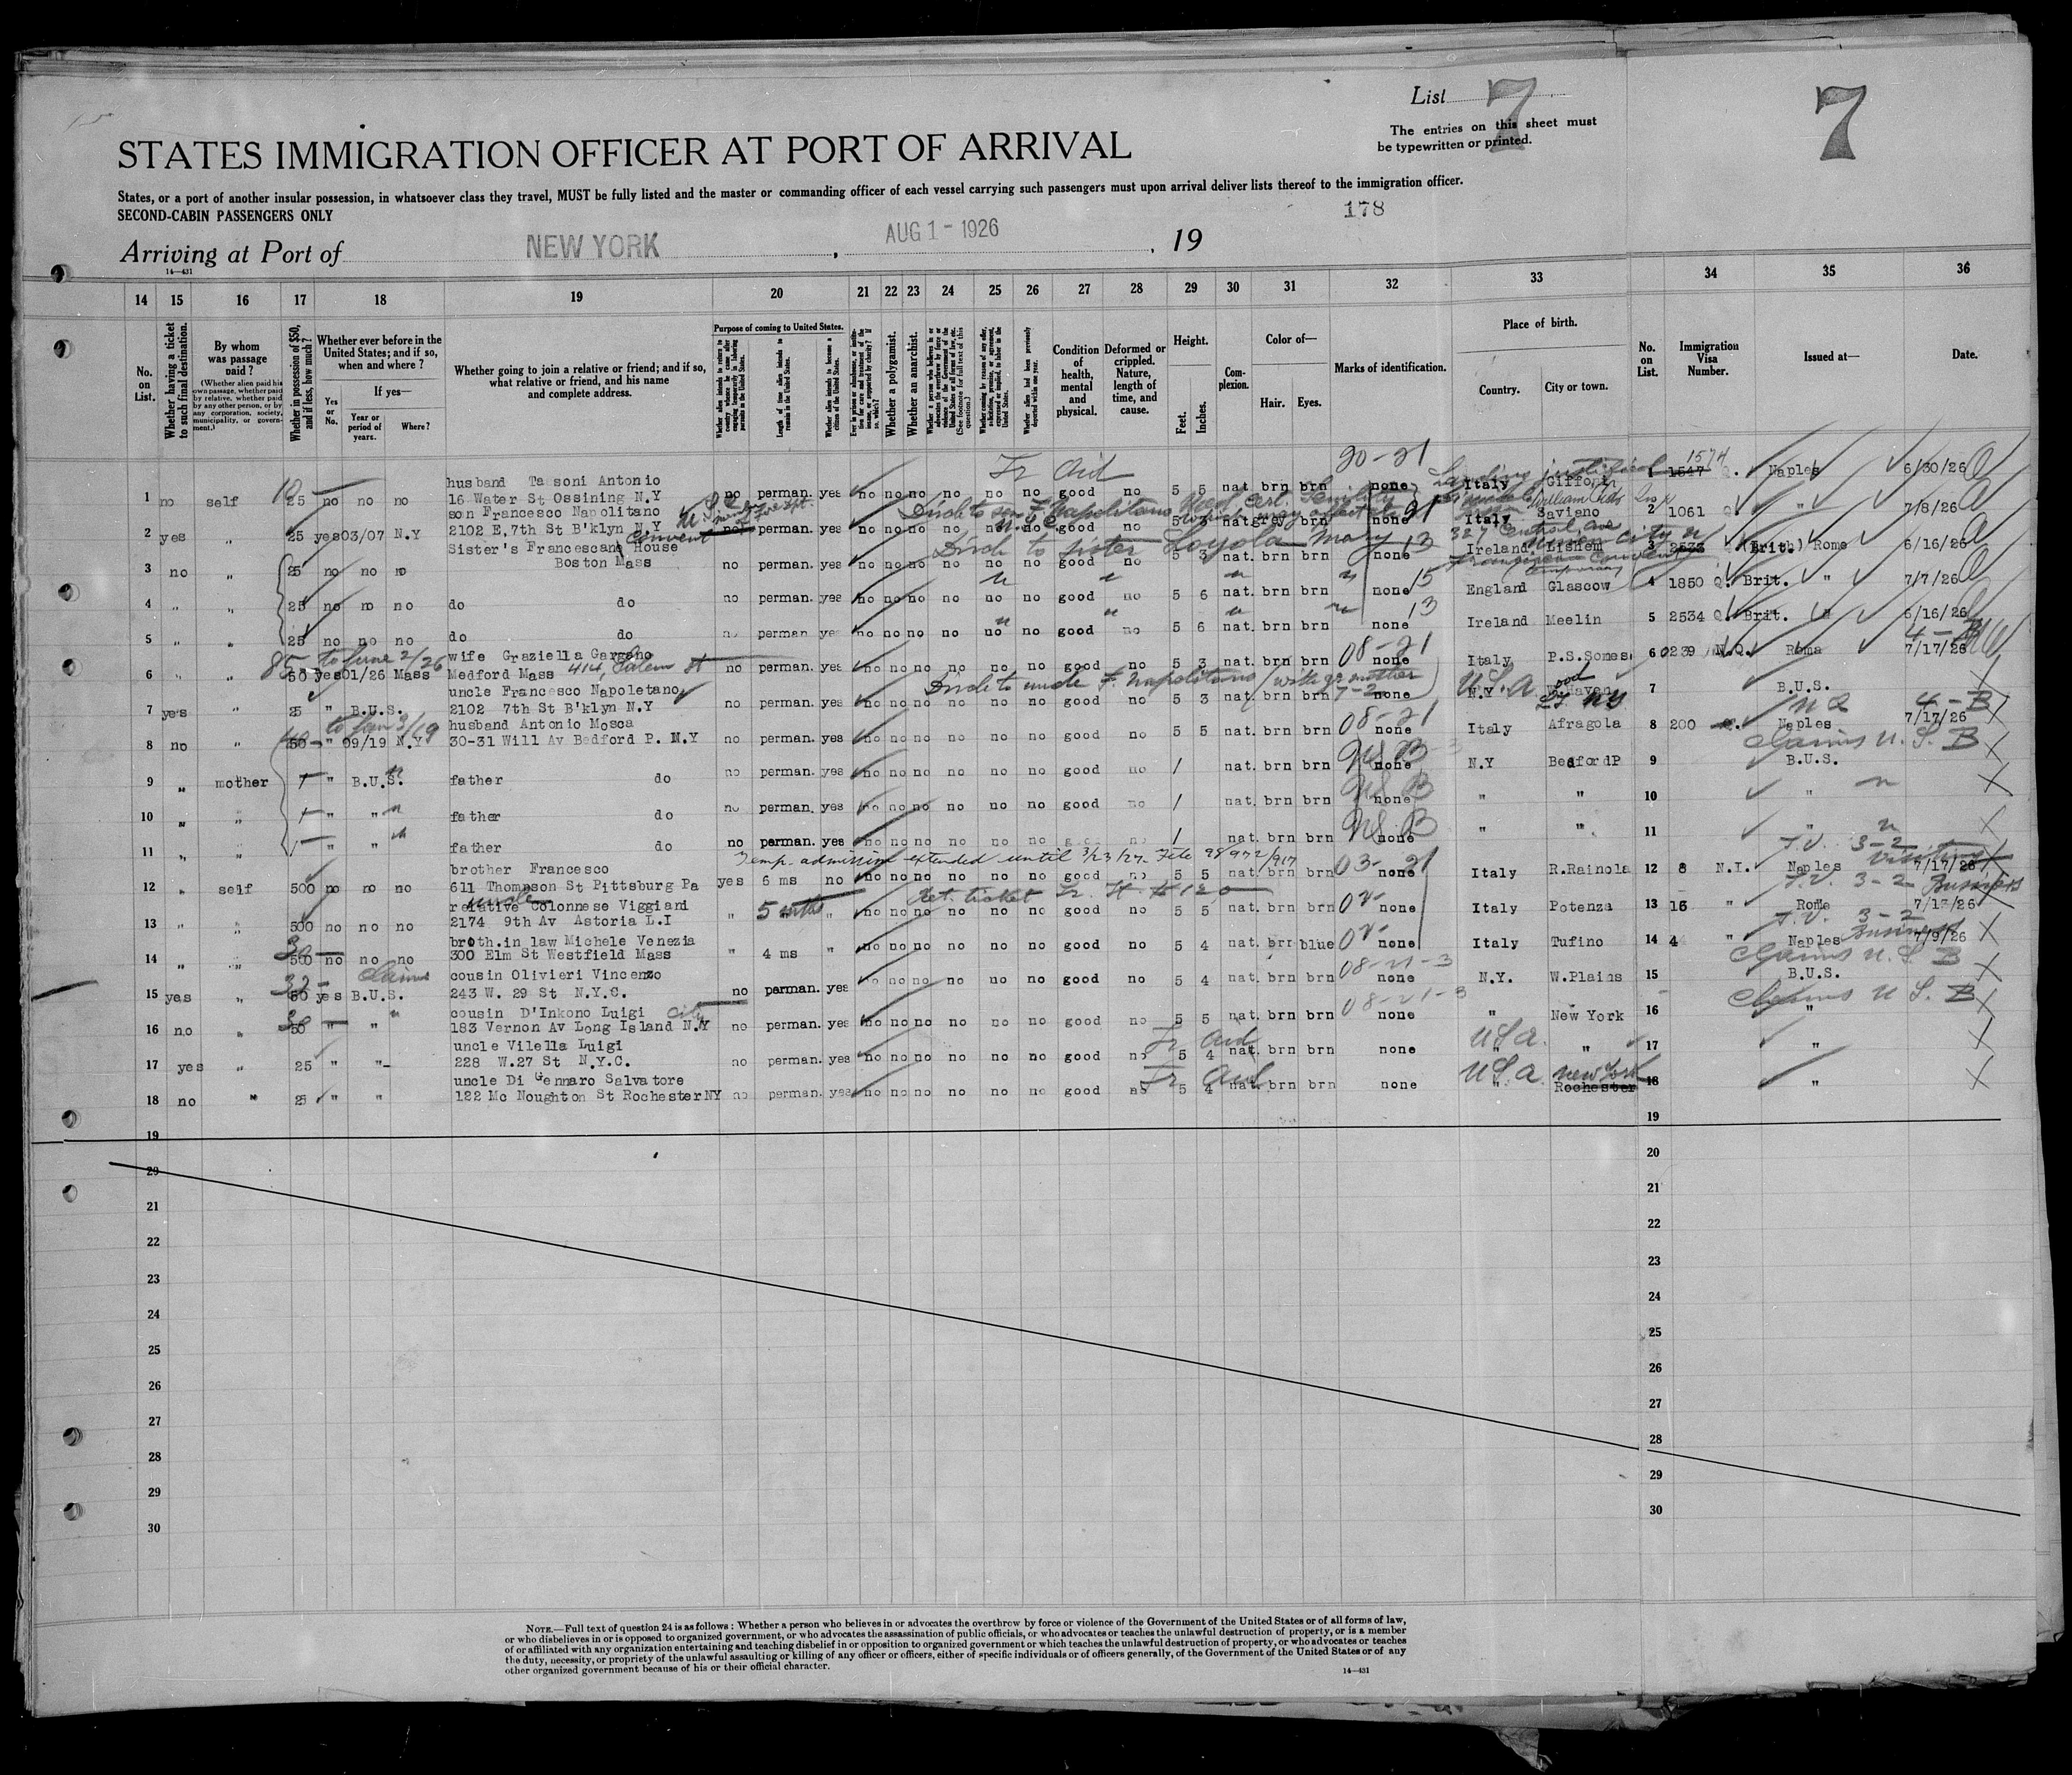 List 7
7
The entries on this sheet must
be typewritten or printed.
STATES IMMIGRATION OFFICER AT PORT OF ARRIVAL
States, or a port of another insular possession, in whatsoever class they travel, MUST be fully listed and the master or commanding officer of each vessel carrying such passengers must upon arrival deliver lists thereof to the immigration officer.
SECOND-CABIN PASSENGERS ONLY
178
Arriving at Port of NEW YORK, AUG 1 - 1926, 19
14—431
14 15 16 17 18 19 20 21 22 23 24 25 26 27 28 29 30 31 32 33 34 35 36
No. on List.
Whether having a ticket to such final destination.
By whom was passage paid?
(Whether alien paid his own passage, whether paid by relative, whether paid by any other person, or by any corporation, society, municipality, or government.)
Whether in possession of $50, and if less, how much?
Whether ever before in the United States; and if so, when and where?
If yes—
Yes or No.
Year or period of years.
Where?
Whether going to join a relative or friend; and if so, what relative or friend, and his name and complete address.
Purpose of coming to United States.
Length of time alien intends to remain in the United States.
Whether alien intends to become a citizen of the United States.
Whether a polygamist.
Whether an anarchist.
Condition of health, mental and physical.
Deformed or crippled. Nature, length of time, and cause.
Height.
Feet.
Inches.
Complexion.
Color of—
Hair.
Eyes.
Marks of identification.
Place of birth.
Country.
City or town.
No. on List.
Immigration Visa Number.
Issued at—
Date.
20-21
Tr Aid
1574
husband Tassoni Antonio
1 no self 10 25 no no no 16 Water St Ossining N.Y no perman. yes no no no no no no good no 5 5 nat brn brn none Italy Giffoni 1 1547 Q. Naples 6/30/26
son Francesco Napolitano
2 yes " 25 yes 03/07 N.Y 2102 E.7th St B'klyn N.Y no perman. yes no no no no no no good no 5 3 nat grey brn none 21 Italy Savieno 2 1061 Q " 7/8/26
Sister's Franciscans Convent House
3 no " 25 no no no Boston Mass no perman. yes no no no no no no good no 5 3 nat. brn brn none 13 Ireland Lishem 3 2533 (Brit.) Rome 6/16/26
4 " " 25 no no no do do no perman. yes no no no no no no good no 5 6 nat. brn brn none 15 England Glascow 4 1850 Q. Brit. " 7/7/26
5 " " 25 no no no do do no perman yes no no no no no no good no 5 6 nat. brn brn none 13 Ireland Meelin 5 2534 Q. Brit. " 6/16/26
85 to June 2/26 wife Graziella Gargano
6 " " 50 yes 01/26 Mass Medford Mass 414, Salem St no perman. yes no no no no no no good no 5 3 nat. brn brn 08-21 none Italy P.S.Somes 6 0239 N.Q. Roma 7/17/26
uncle Francesco Napoletano
7 yes " 25 " B.U.S. 2102 7th St B'klyn N.Y no perman. yes no no no no no no good no 5 3 nat. brn brn 7-2 none N.Y. U.S.A 7 B.U.S.
husband Antonio Mosca
8 no " 50 " 09/19 N.Y 30-31 Will Av Bedford P. N.Y no perman. yes no no no no no no good no 5 5 nat. brn brn 08-21 none Italy Afragola 8 200 Naples 7/17/26
Claims U. S. B
9 " mother " B.U.S. father do no perman. yes no no no no no no good no nat. brn brn USB none N.Y BedfordP 9 B.U.S.
10 " " " " father do no perman. yes no no no no no no good no nat. brn brn USB none " " 10 "
11 " " " " father do no perman. yes no no no no no no good no nat. brn brn USB none " " 11 "
Temp. admission extended until 3/23/27. File 98972/917
brother Francesco
12 " self 500 no no no 611 Thompson St Pittsburg Pa yes 6 ms no no no no no no no good no 5 5 nat. brn brn 03-21 none Italy R.Rainola 12 8 N.I. Naples 7/17/26
T.V. 3-2 Business
relative uncle Colonnese Viggiani Ret. ticket
13 " " 500 no no no 2174 9th Av Astoria L.I " 5 mths " no no no no no no good no 5 5 nat. brn brn none Italy Potenza 13 15 " Rome 7/17/26
T.V. 3-2 Business
broth.in law Michele Venezia
14 " " 500 no no no 300 Elm St Westfield Mass " 4 ms " no no no no no no good no 5 4 nat. brn blue none Italy Tufino 14 4 " Naples 7/9/26
Claims U. S. B
cousin Olivieri Vincenzo
15 yes " 50 yes B.U.S. claims 243 W. 29 St N.Y.C. no perman. yes no no no no no no good no 5 4 nat. brn brn 08-21-3 none N.Y. W.Plains 15 B.U.S.
Claims U S. B
cousin D'Inkono Luigi City
16 no " 50 " " 183 Vernon Av Long Island N.Y no perman. yes no no no no no no good no 5 5 nat. brn brn 08-21-3 none " New York 16 "
uncle Vilella Luigi Tr Aid
17 yes " 25 " " 228 W.27 St N.Y.C. no perman. yes no no no no no no good no 5 4 nat. brn brn none USA. " " 17 "
uncle Di Gennaro Salvatore Tr Aid
18 no " 25 " " 122 Mc Noughton St Rochester NY no perman. yes no no no no no no good no 5 4 nat. brn brn none USA. " New York Rochester 18 "
19 19
20 20
21 21
22 22
23 23
24 24
25 25
26 26
27 27
28 28
29 29
30 30
NOTE.—Full text of question 24 is as follows: Whether a person who believes in or advocates the overthrow by force or violence of the Government of the United States or of all forms of law,
or who disbelieves in or is opposed to organized government, or who advocates the assassination of public officials, or who advocates or teaches the unlawful destruction of property, or is a member
of or affiliated with any organization entertaining and teaching disbelief in or opposition to organized government or which teaches the unlawful destruction of property, or who advocates or teaches
the duty, necessity, or propriety of the unlawful assaulting or killing of any officer or officers, either of specific individuals or of officers generally, of the Government of the United States or of any
other organized government because of his or their official character.
14—431